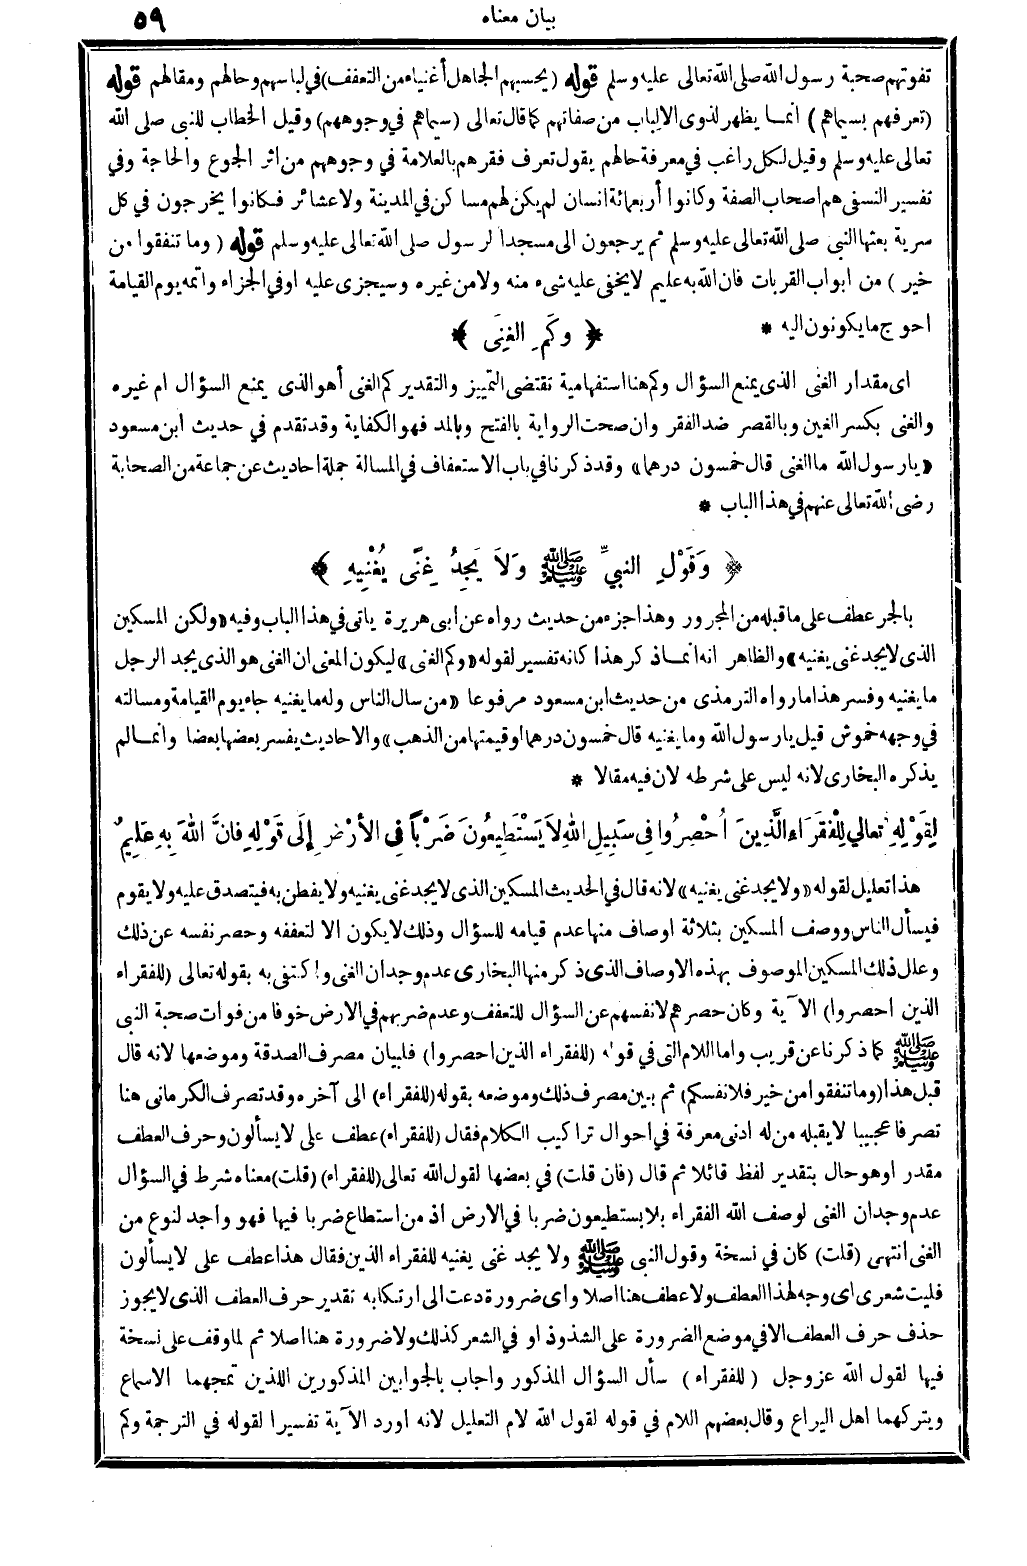 بيان معناه ٥٩
تفوتهم صحبة رسول الله صلى الله تعالى عليه وسلم قوله (يحسبهم الجاهل أغنياء من التعفف) في لباسهم وحالهم ومقالهم قوله
(تعرفهم بسيماهم) انما يظهر لذوي الالباب من صفاتهم كما قال تعالى (سيماهم في وجوههم) وقيل الخطاب للنبى صلى الله
تعالى عليه وسلم وقيل لكل راغب في معرفة حالهم يقول تعرف فقرهم بالعلامة في وجوههم من اثر الجوع والحاجة وفي
تفسير النسفي هم اصحاب الصفة وكانوا أربعمائة انسان لم يكن لهم مساكن في المدينة ولا عشائر فكانوا يخرجون في كل
سرية بعثها النبى صلى الله تعالى عليه وسلم ثم يرجعون الى مسجد الرسول صلى الله تعالى عليه وسلم قوله (وما تنفقوا من
خير) من ابواب القربات فان الله به عليم لا يخفى عليه شيء منه ولا من غيره وسيجزى عليه اوفي الجزاء واتمه يوم القيامة
احوج ما يكونون اليه *
﴿ وكَمِ الغِنَى ﴾
اى مقدار الغنى الذى يمنع السؤال وكم هنا استفهامية تقتضى التمييز والتقدير كم الغنى أهو الذى يمنع السؤال ام غيره
والغنى بكسر الغين وبالقصر ضد الفقر وان صحت الرواية بالفتح وبالمد فهو الكفاية وقد تقدم في حديث ابن مسعود
«يارسول الله ما الغنى قال خمسون درهما» وقد ذكرنا في باب الاستعفاف في المسالة جملة احاديث عن جماعة من الصحابة
رضى الله تعالى عنهم في هذا الباب *
﴿ وَقَوْلِ النبيِّ ﷺ وَلاَ يَجِدُ غِنًى يُغْنِيهِ ﴾
بالجر عطف على ما قبله من المجرور وهذا جزء من حديث رواه عن ابى هريرة ياتى في هذا الباب وفيه «ولكن المسكين
الذى لا يجد غنى يغنيه» والظاهر انه انما ذكر هذا كانه تفسير لقوله «وكم الغنى» ليكون المعنى ان الغنى هو الذى يجد الرجل
ما يغنيه وفسر هذا ما رواه الترمذى من حديث ابن مسعود مرفوعا «من سال الناس وله ما يغنيه جاء يوم القيامة ومسالته
في وجهه خموش قيل يارسول الله وما يغنيه قال خمسون درهما او قيمتها من الذهب» والاحاديث يفسر بعضها بعضا وانما لم
يذكره البخارى لانه ليس على شرطه لان فيه مقالا *
لِقَوْلِهِ تعالي لِلْفُقَرَاءِ الَّذِينَ اُحْصِرُوا فِى سَبِيلِ اللهِ لاَ يَسْتَطِيعُونَ ضَرْبًا فِى الأرْضِ إلَى قَوْلِهِ فَانَّ اللهَ بِهِ عَلِيمٌ
هذا تعليل لقوله «ولا يجد غنى يغنيه» لانه قال في الحديث المسكين الذى لا يجد غنى يغنيه ولا يفطن به فيتصدق عليه ولا يقوم
فيسأل الناس ووصف المسكين بثلاثة اوصاف منها عدم قيامه للسؤال وذلك لا يكون الا لتعففه وحصر نفسه عن ذلك
وعلل ذلك المسكين الموصوف بهذه الاوصاف الذى ذكر منها البخارى عدم وجدان الغنى واكتفى به بقوله تعالى (للفقراء
الذين احصروا) الآية وكان حصرهم لانفسهم عن السؤال للتعفف وعدم ضربهم في الارض خوفا من فوات صحبة النبى
ﷺ كما ذكرنا عن قريب واما اللام التى في قوله (للفقراء الذين احصروا) فلبيان مصرف الصدقة وموضعها لانه قال
قبل هذا (وما تنفقوا من خير فلانفسكم) ثم بين مصرف ذلك وموضعه بقوله (للفقراء) الى آخره وقد تصرف الكرمانى هنا
تصرفا عجيبا لا يقبله من له ادنى معرفة في احوال تراكيب الكلام فقال (للفقراء) عطف على لا يسألون وحرف العطف
مقدر او هو حال بتقدير لفظ قائلا ثم قال (فان قلت) في بعضها لقول الله تعالى (للفقراء) (قلت) معناه شرط في السؤال
عدم وجدان الغنى لوصف الله الفقراء بلا يستطيعون ضربا في الارض اذ من استطاع ضربا فيها فهو واجد لنوع من
الغنى انتهى (قلت) كان في نسخة وقول النبى ﷺ ولا يجد غنى يغنيه للفقراء الذين فقال هذا عطف على لا يسألون
فليت شعرى اى وجه لهذا العطف ولا عطف هنا اصلا واى ضرورة دعت الى ارتكابه تقدير حرف العطف الذى لا يجوز
حذف حرف العطف الا في موضع الضرورة على الشذوذ او في الشعر كذلك ولا ضرورة هنا اصلا ثم لما وقف على نسخة
فيها لقول الله عز وجل (للفقراء) سأل السؤال المذكور واجاب بالجوابين المذكورين اللذين تمجهما الاسماع
ويتركهما اهل اليراع وقال بعضهم اللام في قوله لقول الله لام التعليل لانه اورد الآية تفسيرا لقوله في الترجمة وكم